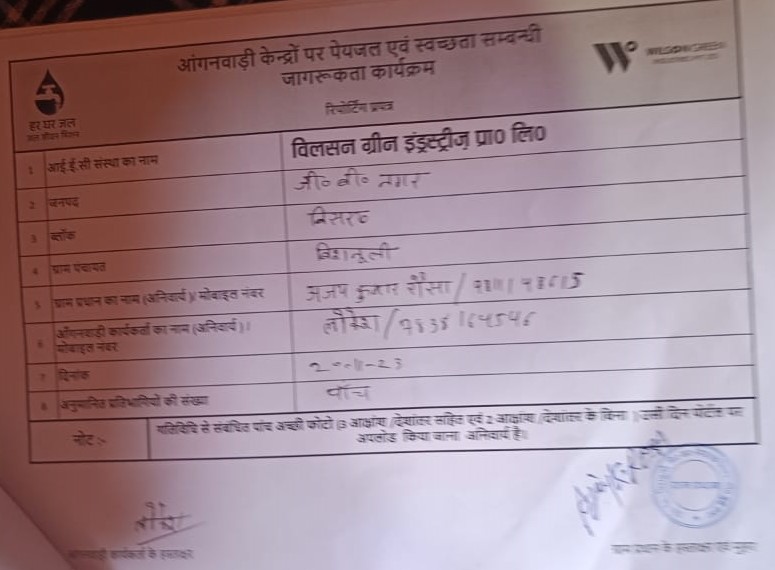 आंगनवाड़ी केन्द्रों पर पेयजल एवं स्वच्छता सम्बन्धी
जागरूकता कार्यक्रम
रिपोर्टिंग प्रपत्र
हर घर जल
जल जीवन मिशन
W
WILSON GREEN
1 आई.ई.सी संस्था का नाम विलसन ग्रीन इंडस्ट्रीज़ प्रा0 लि0
2 जनपद जी० बी० नगर
3 ब्लॉक बिसरख
4 ग्राम पंचायत
5 ग्राम प्रधान का नाम (अनिवार्य)/ मोबाइल नंबर अजय कुमार
6 आँगनवाड़ी कार्यकर्ता का नाम (अनिवार्य)।
मोबाइल नंबर
7 दिनांक
8 अनुमानित प्रतिभागियों की संख्या पाँच
नोट :- गतिविधि से संबंधित पांच अच्छी फोटो (3 आक्षांश /देशांतर सहित एवं 2 आक्षांश /देशांतर के बिना ) उसी दिन पोर्टल पर
अपलोड किया जाना अनिवार्य है।
आंगनवाड़ी कार्यकर्ता के हस्ताक्षर
ग्राम प्रधान के हस्ताक्षर एवं मुहर